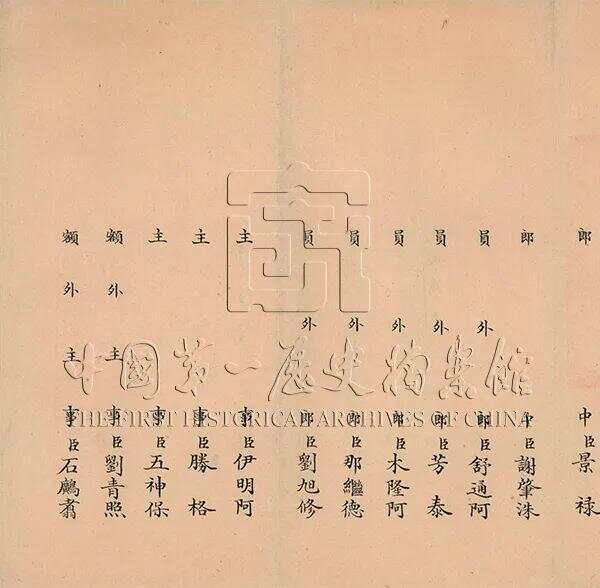 郎中臣景祿
郎中臣謝肇洙
員外郎臣舒通阿
員外郎臣芳泰
員外郎臣木隆阿
員外郎臣那繼德
員外郎臣劉旭修
主事臣伊明阿
主事臣勝格
主事臣五神保
額外主事臣劉青照
額外主事臣石鸕翥
中國第一歷史檔案館
THE FIRST HISTORICAL ARCHIVES OF CHINA